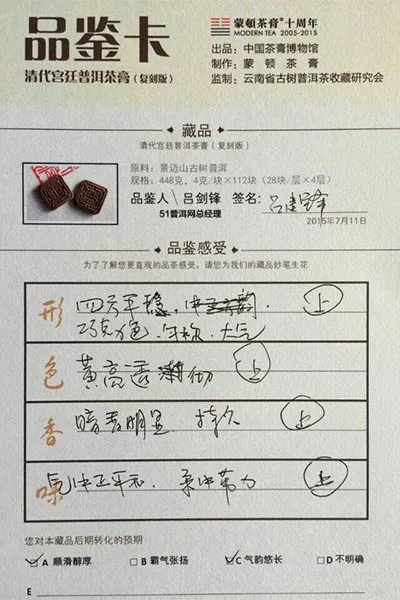 品鉴卡
清代宫廷普洱茶膏（复刻版）
蒙顿茶膏®十周年
MODERN TEA 2005-2015
出品：中国茶膏博物馆
制作：蒙顿茶膏
监制：云南省古树普洱茶收藏研究会
藏品
清代宫廷普洱茶膏（复刻版）
原料：景迈山古树普洱
规格：448克，4克/块×112块（28块/层×4层）
品鉴人 吕剑锋 签名：吕建锋
51普洱网总经理
2015年7月11日
品鉴感受
为了了解您更直观的品茶感受，请您为我们的藏品妙笔生花
形 四方平稳，中正 韵 上
巧克力色、年稳、大气
色 黄高透 彻 上
香 暗香明显 持久 上
味 气中正平和 柔中带力 上
您对本藏品后期转化的预期
A 顺滑醇厚 B 霸气张扬 C 气韵悠长 D 不明确
E